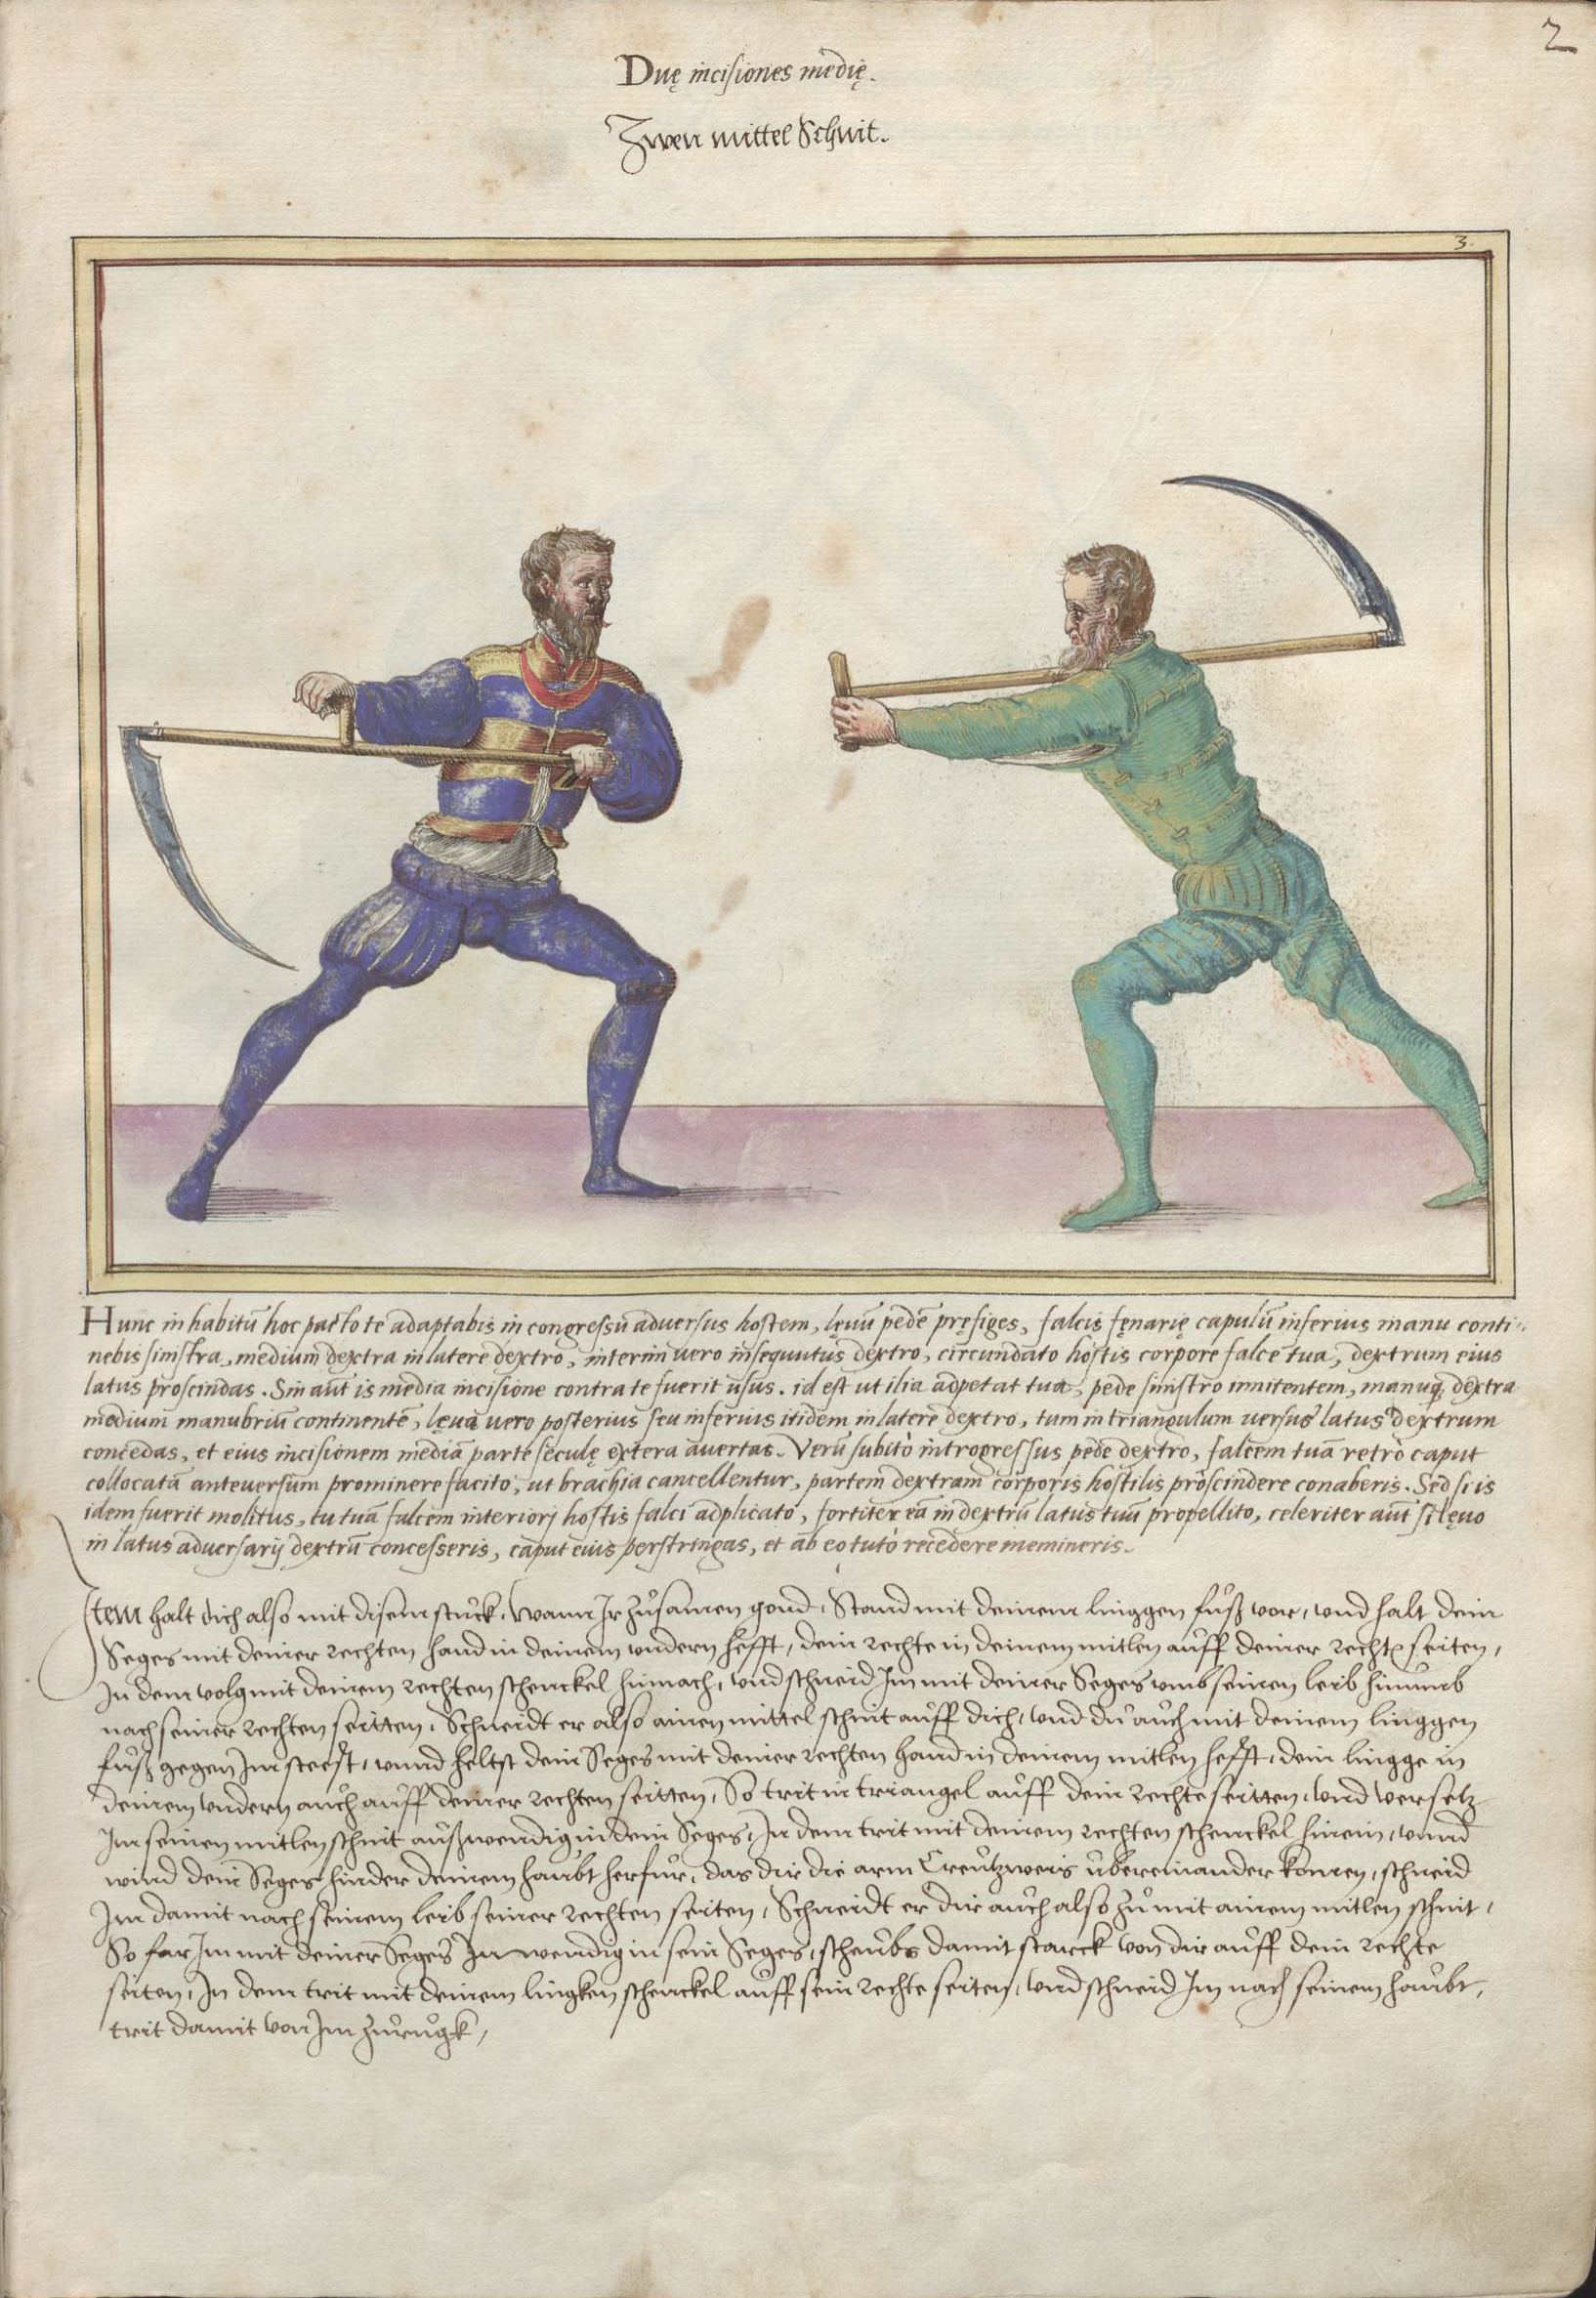 2
Duę incisiones medię.
Zwen mittel Schnit.
3.
Hunc in habitū hoc pacto te adaptabis in congressu adversus hostem, lęvū pedē pręfiges, falcis fęnarię capulū inferius manu conti-
nebis sinistra, medium dextra in latere dextro, interim vero insequutus dextro, circundato hostis corpore falce tua, dextrum eius
latus proscindas. Sin aūt is media incisione contra te fuerit usus. id est ut ilia adpetat tua, pede sinistro innitentem, manuq̄ dextra
medium manubriū continentē, lęva vero posterius seu inferius itidem in latere dextro, tum in triangulum versus latus dextrum
concedas, et eius incisionem mediā parte seculę extera avertas. Verū subitò introgressus pede dextro, falcem tuā retrò caput
collocatā anteversum prominere facito, ut brachia cancellentur, partem dextram corporis hostilis proscindere conaberis. Sed si is
idem fuerit molitus, tu tuā falcem interiorj hostis falci adplicato, fortiter eā in dextrū latus tuū propellito, celeriter aūt si lęvo
in latus adversarij dextrū concesseris, caput eius perstringas, et ab eo tutò recedere memineris.
Item halt dich also mit disem stuckh, wann Ir zůsamen gond, Stand mit deinem linggen fůß vor, vnd halt dein
Seges mit deiner rechten hand in deinem vndern hefft, dein rechte in deinem mitlen auff deiner recht seiten,
In dem volg mit deinem rechten schenckel hinnach, vnd schneid Im mit deiner Seges vmb seinen leib hinumb
nach seiner rechten seitten, Schneidt er also ainen mittel schnit auff dich, vnd du auch mit deinem linggen
fůß gegen Im steest, vnnd heltst dein Seges mit deiner rechten hand in deinem mitlen hefft, dein lingge in
deinem vndern auch auff deiner rechten seitten, So trit in triangel auff dein rechte seitten, vnd versetz
Im seinen mitlen schnit außwendig in dein Seges, In dem trit mit deinem rechten schenckel hinein, vnnd
wind dein Seges hinder deinem haubt herfur, das dir die arm Creutzweis ubereinander komen, schneid
Im damit nach seinem leib seiner rechten seiten, Schneidt er dir auch also zů mit ainem mitlen schnit,
So far Im mit deiner Seges In wendig in sein Seges, scheubs damit starck von dir auff dein rechte
seiten, In dem trit mit deinem lingken schenckel auff sein rechte seiten, vnd schneid Im nach seinem haubt,
trit damit von Im zurugk,